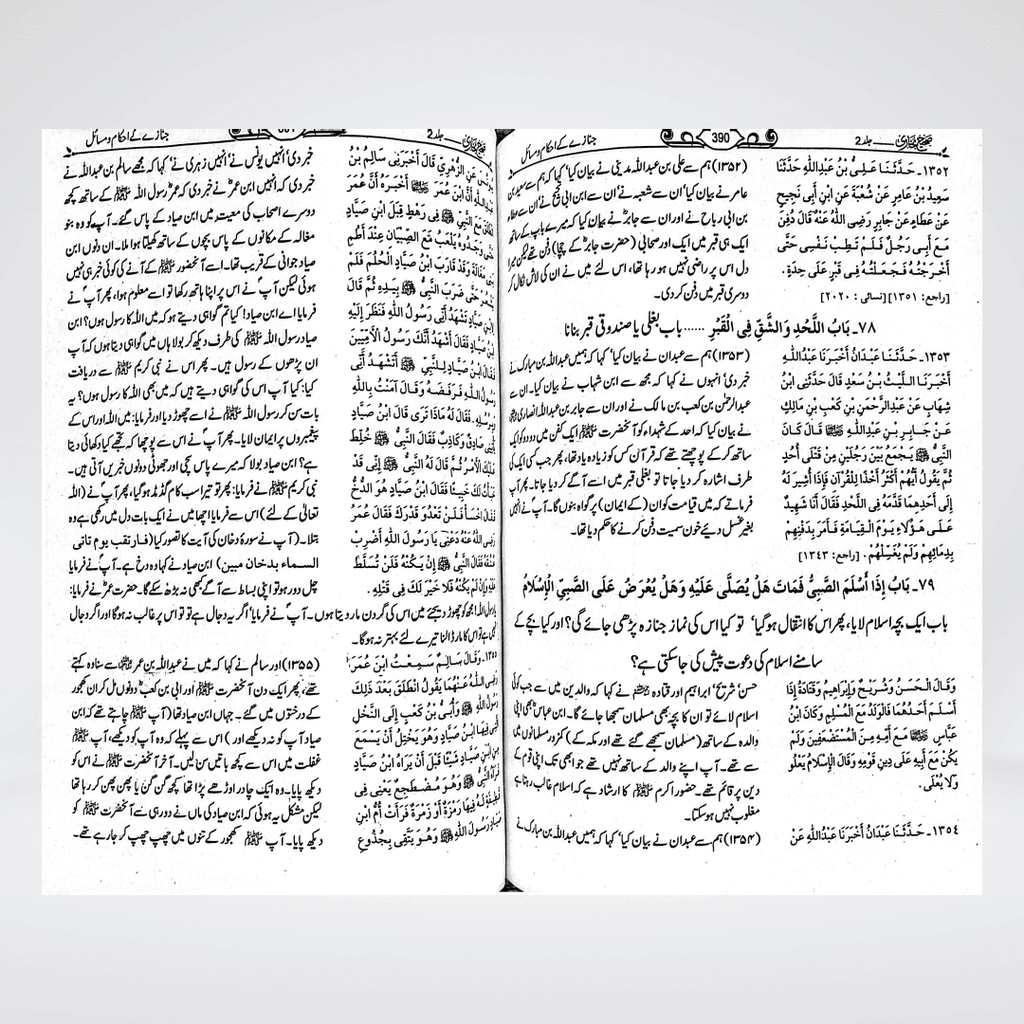 صحیح بخاری جلد2
390
جنازے کے احکام و مسائل
١٣٥٢ـ حَدَّثَنَا عَلِیُّ بْنُ عَبْدِاللّٰهِ حَدَّثَنَا
سَعِيدُ بْنُ عَامِرٍ عَنْ شُعْبَةَ عَنِ ابْنِ أَبِی نَجِيحٍ
عَنْ عَطَاءٍ عَنْ جَابِرٍ رَضِیَ اللّٰهُ عَنْهُ قَالَ دُفِنَ
مَعَ أَبِی رَجُلٌ فَلَمْ تَطِبْ نَفْسِی حَتَّی
أَخْرَجْتُهُ فَجَعَلْتُهُ فِی قَبْرٍ عَلَی حِدَةٍ.
[راجع: ١٣٥١][نسائی: ٢٠٢٠]
(۱۳۵۲) ہم سے علی بن عبداللہ مدینی نے بیان کیا‘ کہا کہ ہم سے سعید بن
عامر نے بیان کیا‘ ان سے شعبہ نے‘ ان سے ابن ابی نجیح نے‘ ان سے عطاء
بن ابی رباح نے اور ان سے جابر نے بیان کیا کہ میرے باپ کے ساتھ
ایک ہی قبر میں ایک اور صحابی (حضرت جابر کے چچا) دفن تھے لیکن میرا
دل اس پر راضی نہیں ہو رہا تھا، اس لئے میں نے ان کی لاش نکال کر
دوسری قبر میں دفن کر دی۔
٧٨ـ بَابُ اللَّحْدِ وَالشَّقِّ فِی الْقَبْرِ ...... باب بغلی یا صندوقی قبر بنانا
١٣٥٣ـ حَدَّثَنَا عَبْدَانُ أَخْبَرَنَا عَبْدُاللّٰهِ
أَخْبَرَنَا اللَّيْثُ بْنُ سَعْدٍ قَالَ حَدَّثَنِی ابْنُ
شِهَابٍ عَنْ عَبْدِالرَّحْمٰنِ بْنِ كَعْبِ بْنِ مَالِكٍ
عَنْ جَابِرِ بْنِ عَبْدِاللّٰهِ قَالَ كَانَ
النَّبِیُّ ﷺ يَجْمَعُ بَيْنَ رَجُلَيْنِ مِنْ قَتْلَی أُحُدٍ
ثُمَّ يَقُولُ أَيُّهُمْ أَكْثَرُ أَخْذًا لِلْقُرْآنِ فَإِذَا أُشِيرَ لَهُ
إِلَی أَحَدِهِمَا قَدَّمَهُ فِی اللَّحْدِ فَقَالَ أَنَا شَهِيدٌ
عَلَی هٰؤُلَاءِ يَوْمَ الْقِيَامَةِ فَأَمَرَ بِدَفْنِهِمْ
بِدِمَائِهِمْ وَلَمْ يُغَسِّلْهُمْ. [راجع: ١٣٤٣]
(۱۳۵۳) ہم سے عبدان نے بیان کیا‘ کہا کہ ہمیں عبداللہ بن مبارک نے
خبر دی‘ انہوں نے کہا کہ مجھ سے ابن شہاب نے بیان کیا۔ ان سے
عبدالرحمٰن بن کعب بن مالک نے اور ان سے جابر بن عبداللہ انصاری
نے بیان کیا کہ احد کے شہداء کو آنحضرت ﷺ ایک کفن میں دو دو کو ایک
ساتھ کر کے پوچھتے تھے کہ قرآن کس کو زیادہ یاد تھا، پھر جب کسی ایک کی
طرف اشارہ کر دیا جاتا تو بغلی قبر میں اسے آگے کر دیا جاتا۔ پھر آپ
فرماتے کہ میں قیامت کو ان (کے ایمان) پر گواہ بنوں گا۔ آپ نے انہیں
بغیر غسل دیئے خون سمیت دفن کرنے کا حکم دیا تھا۔
٧٩ـ بَابُ إِذَا أَسْلَمَ الصَّبِیُّ فَمَاتَ هَلْ يُصَلَّی عَلَيْهِ وَهَلْ يُعْرَضُ عَلَی الصَّبِیِّ الْإِسْلَامُ
باب ایک بچہ اسلام لایا، پھر اس کا انتقال ہوگیا‘ تو کیا اس کی نماز جنازہ پڑھی جائے گی؟ اور کیا بچے کے
سامنے اسلام کی دعوت پیش کی جاسکتی ہے؟
وَقَالَ الْحَسَنُ وَشُرَيْحٌ وَإِبْرَاهِيمُ وَقَتَادَةُ إِذَا
أَسْلَمَ أَحَدُهُمَا فَالْوَلَدُ مَعَ الْمُسْلِمِ وَكَانَ ابْنُ
عَبَّاسٍ مَعَ أُمِّهِ مِنَ الْمُسْتَضْعَفِينَ وَلَمْ
يَكُنْ مَعَ أَبِيهِ عَلَی دِينِ قَوْمِهِ وَقَالَ الْإِسْلَامُ يَعْلُو
وَلَا يُعْلَی.
حسن‘ شریح‘ ابراہیم اور قتادہ نے کہا کہ والدین میں سے جب کوئی
اسلام لائے تو ان کا بچہ بھی مسلمان سمجھا جائے گا۔ ابن عباس بھی اپنی
والدہ کے ساتھ (مسلمان سمجھے گئے تھے اور مکہ کے) کمزور مسلمانوں میں
سے تھے۔ آپ اپنے والد کے ساتھ نہیں تھے جو ابھی تک اپنی قوم کے
دین پر قائم تھے۔ حضور اکرم ﷺ کا ارشاد ہے کہ اسلام غالب رہتا ہے
مغلوب نہیں ہوسکتا۔
١٣٥٤ـ حَدَّثَنَا عَبْدَانُ أَخْبَرَنَا عَبْدُاللّٰهِ عَنْ
(۱۳۵۴) ہم سے عبدان نے بیان کیا‘ کہا کہ ہمیں عبداللہ بن مبارک نے
صحیح بخاری جلد2
جنازے کے احکام و مسائل
يُونُسَ عَنِ الزُّهْرِیِّ قَالَ أَخْبَرَنِی سَالِمُ بْنُ
عَبْدِاللّٰهِ أَنَّ ابْنَ عُمَرَ أَخْبَرَهُ أَنَّ عُمَرَ
انْطَلَقَ مَعَ النَّبِیِّ ﷺ فِی رَهْطٍ قِبَلَ ابْنِ صَيَّادٍ
حَتَّی وَجَدُوهُ يَلْعَبُ مَعَ الصِّبْيَانِ عِنْدَ أُطُمِ
بَنِی مَغَالَةَ وَقَدْ قَارَبَ ابْنُ صَيَّادٍ الْحُلُمَ فَلَمْ
يَشْعُرْ حَتَّی ضَرَبَ النَّبِیُّ ﷺ بِيَدِهِ ثُمَّ قَالَ
لِابْنِ صَيَّادٍ تَشْهَدُ أَنِّی رَسُولُ اللّٰهِ فَنَظَرَ إِلَيْهِ
ابْنُ صَيَّادٍ فَقَالَ أَشْهَدُ أَنَّكَ رَسُولُ الْأُمِّيِّينَ
فَقَالَ ابْنُ صَيَّادٍ لِلنَّبِیِّ ﷺ أَتَشْهَدُ أَنِّی
رَسُولُ اللّٰهِ فَرَفَضَهُ وَقَالَ آمَنْتُ بِاللّٰهِ
وَبِرُسُلِهِ. فَقَالَ لَهُ مَاذَا تَرَی قَالَ ابْنُ صَيَّادٍ
يَأْتِينِی صَادِقٌ وَكَاذِبٌ فَقَالَ النَّبِیُّ ﷺ خُلِّطَ
عَلَيْكَ الْأَمْرُ ثُمَّ قَالَ لَهُ النَّبِیُّ ﷺ إِنِّی قَدْ
خَبَأْتُ لَكَ خَبِيئًا فَقَالَ ابْنُ صَيَّادٍ هُوَ الدُّخُّ
فَقَالَ اخْسَأْ فَلَنْ تَعْدُوَ قَدْرَكَ فَقَالَ عُمَرُ
رَضِیَ اللّٰهُ عَنْهُ دَعْنِی يَا رَسُولَ اللّٰهِ أَضْرِبْ
عُنُقَهُ فَقَالَ النَّبِیُّ ﷺ إِنْ يَكُنْهُ فَلَنْ تُسَلَّطَ
عَلَيْهِ وَإِنْ لَمْ يَكُنْهُ فَلَا خَيْرَ لَكَ فِی قَتْلِهِ.
خبر دی‘ انہیں یونس نے‘ انہیں زہری نے‘ کہا کہ مجھے سالم بن عبداللہ نے
خبر دی کہ انہیں ابن عمر نے خبر دی کہ عمر رسول اللہ ﷺ کے ساتھ کچھ
دوسرے اصحاب کی معیت میں ابن صیاد کے پاس گئے۔ آپ کو وہ بنو
مغالہ کے مکانوں کے پاس بچوں کے ساتھ کھیلتا ہوا ملا۔ ان دنوں ابن
صیاد جوانی کے قریب تھا۔ اسے آنحضور ﷺ کے آنے کی کوئی خبر ہی نہیں
ہوئی لیکن آپ نے اس پر اپنا ہاتھ رکھا تو اسے معلوم ہوا، پھر آپ نے
فرمایا اے ابن صیاد! کیا تم گواہی دیتے ہو کہ میں اللہ کا رسول ہوں؟ ابن
صیاد رسول اللہ ﷺ کی طرف دیکھ کر بولا ہاں میں گواہی دیتا ہوں کہ آپ
ان پڑھوں کے رسول ہیں۔ پھر اس نے نبی کریم ﷺ سے دریافت
کیا: کیا آپ اس کی گواہی دیتے ہیں کہ میں بھی اللہ کا رسول ہوں؟ یہ
بات سن کر رسول اللہ ﷺ نے اسے چھوڑ دیا اور فرمایا: میں اللہ اور اس کے
پیغمبروں پر ایمان لایا۔ پھر آپ نے اس سے پوچھا کہ تجھے کیا دکھائی دیتا
ہے؟ ابن صیاد بولا کہ میرے پاس سچی اور جھوٹی دونوں خبریں آتی ہیں۔
نبی کریم ﷺ نے فرمایا: پھر تو تیرا سب کام گڈمڈ ہوگیا، پھر آپ نے (اللہ
تعالیٰ کے لئے) اس سے فرمایا اچھا میں نے ایک بات دل میں رکھی ہے وہ
بتلا۔ (آپ نے سورۂ دخان کی آیت کا تصور کیا (فارتقب یوم تاتی
السماء بدخان مبین) ابن صیاد نے کہا وہ دخ ہے۔ آپ نے فرمایا
چل دور ہو تو اپنی بساط سے آگے کبھی نہ بڑھ سکے گا۔ حضرت عمر نے فرمایا:
یا رسول اللہ! مجھ کو چھوڑ دیجئے میں اس کی گردن مار دیتا ہوں۔ آپ نے فرمایا‘ اگر یہ دجال ہے تو تو اس پر غالب نہ ہوگا اور اگر دجال
نہیں ہے تو اس کا مار ڈالنا تیرے لئے بہتر نہ ہوگا۔
١٣٥٥ـ وَقَالَ سَالِمٌ سَمِعْتُ ابْنَ عُمَرَ
رَضِیَ اللّٰهُ عَنْهُمَا يَقُولُ انْطَلَقَ بَعْدَ ذٰلِكَ
رَسُولُ اللّٰهِ ﷺ وَأُبَیُّ بْنُ كَعْبٍ إِلَی النَّخْلِ
الَّتِی فِيهَا ابْنُ صَيَّادٍ وَهُوَ يَخْتِلُ أَنْ يَسْمَعَ
مِنِ ابْنِ صَيَّادٍ شَيْئًا قَبْلَ أَنْ يَرَاهُ ابْنُ صَيَّادٍ
فَرَآهُ النَّبِیُّ ﷺ وَهُوَ مُضْطَجِعٌ يَعْنِی فِی
قَطِيفَةٍ لَهُ فِيهَا رَمْزَةٌ أَوْ زَمْرَةٌ فَرَأَتْ أُمُّ ابْنِ
صَيَّادٍ رَسُولَ اللّٰهِ ﷺ وَهُوَ يَتَّقِی بِجُذُوعِ
(۱۳۵۵) اور سالم نے کہا کہ میں نے عبداللہ بن عمر سے سنا وہ کہتے
تھے، پھر ایک دن آنحضرت ﷺ اور ابی بن کعب دونوں مل کر ان کھجور
کے درختوں میں گئے۔ جہاں ابن صیاد تھا (آپ ﷺ چاہتے تھے کہ ابن
صیاد آپ کو نہ دیکھے اور) اس سے پہلے کہ وہ آپ کو دیکھے، آپ ﷺ
غفلت میں اس سے کچھ باتیں سن لیں۔ آخر آنحضرت ﷺ نے اس کو
دیکھ پایا۔ وہ ایک چادر اوڑھے پڑا تھا کچھ گن گن یا پھن پھن کر رہا تھا
لیکن مشکل یہ ہوئی کہ ابن صیاد کی ماں نے دور ہی سے آنحضرت ﷺ کو
دیکھ پایا۔ آپ ﷺ کھجور کے تنوں میں چھپ چھپ کر جا رہے تھے۔